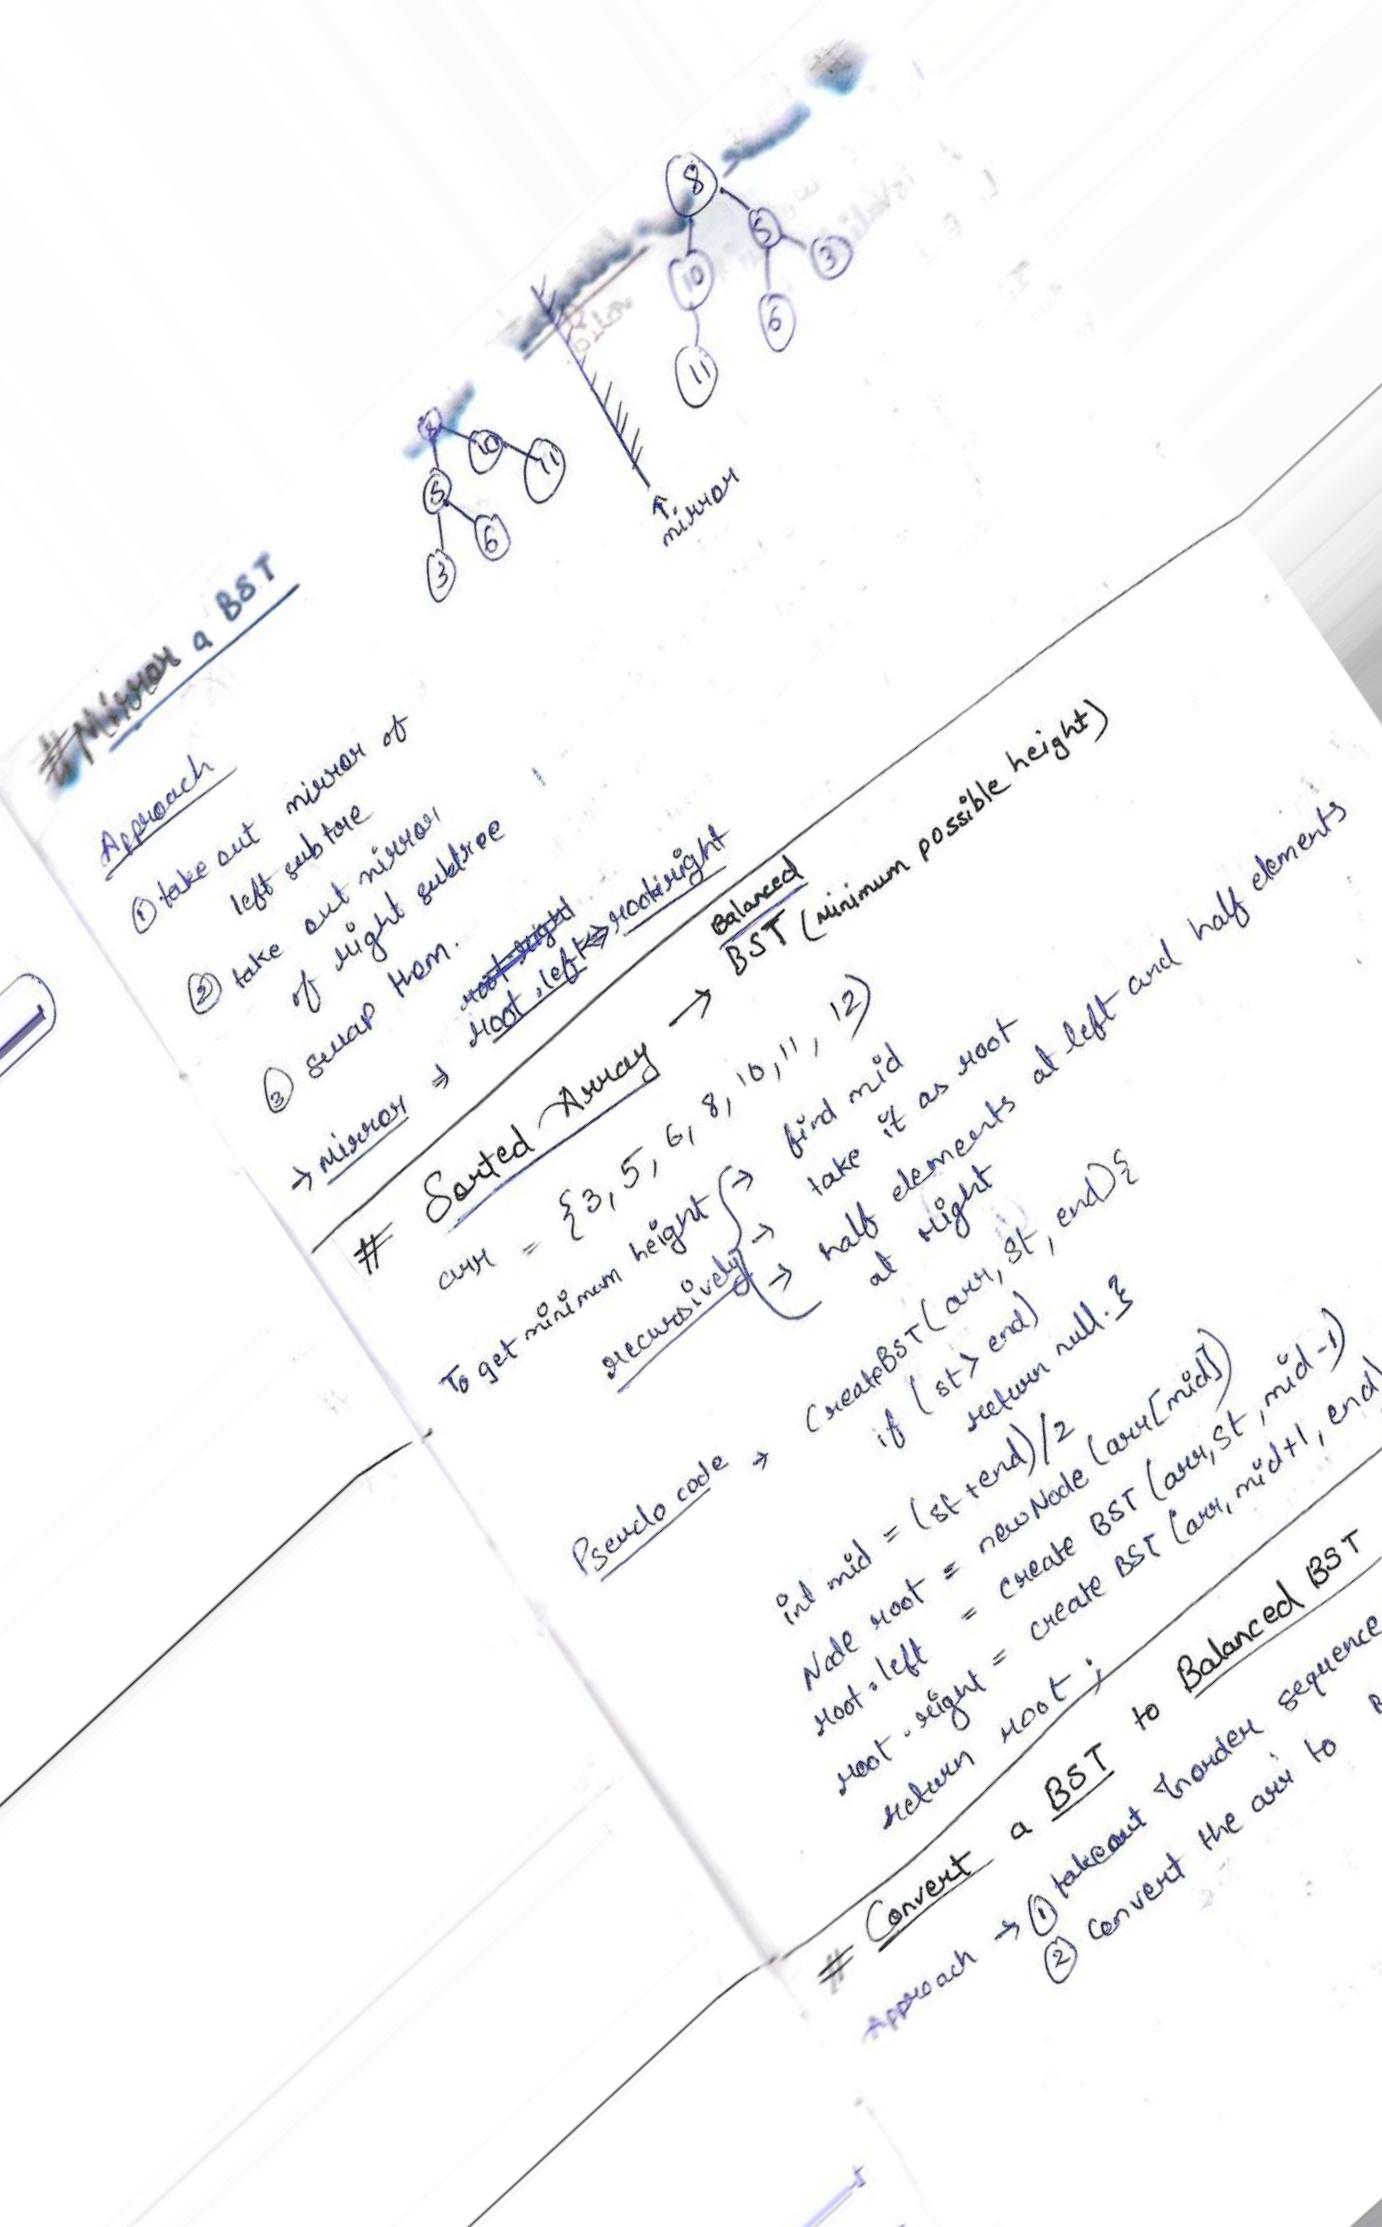 # Mirror a BST
8
5 10
3 6 11
8
10 5
11 6 3
↑
mirror
Approach
① take out mirror of
left subtree
② take out mirror
of right subtree
③ swap them.
root.right
→ Mirror ⇒ root.left ⇔ root.right
# Sorted Array → Balanced
BST (Minimum possible height)
arr = {3, 5, 6, 8, 10, 11, 12}
To get minimum height → find mid
recursively → take it as root
→ half elements at left and half elements
at right
Pseudo code → CreateBST (arr, st, end) {
if (st > end)
return null. }
int mid = (st + end)/2
Node root = new Node (arr[mid])
root.left = create BST (arr, st, mid-1)
root.right = create BST (arr, mid+1, end)
return root ;
# Convert a BST to Balanced BST
Approach → ① takeout Inorder sequence
② Convert the arr to